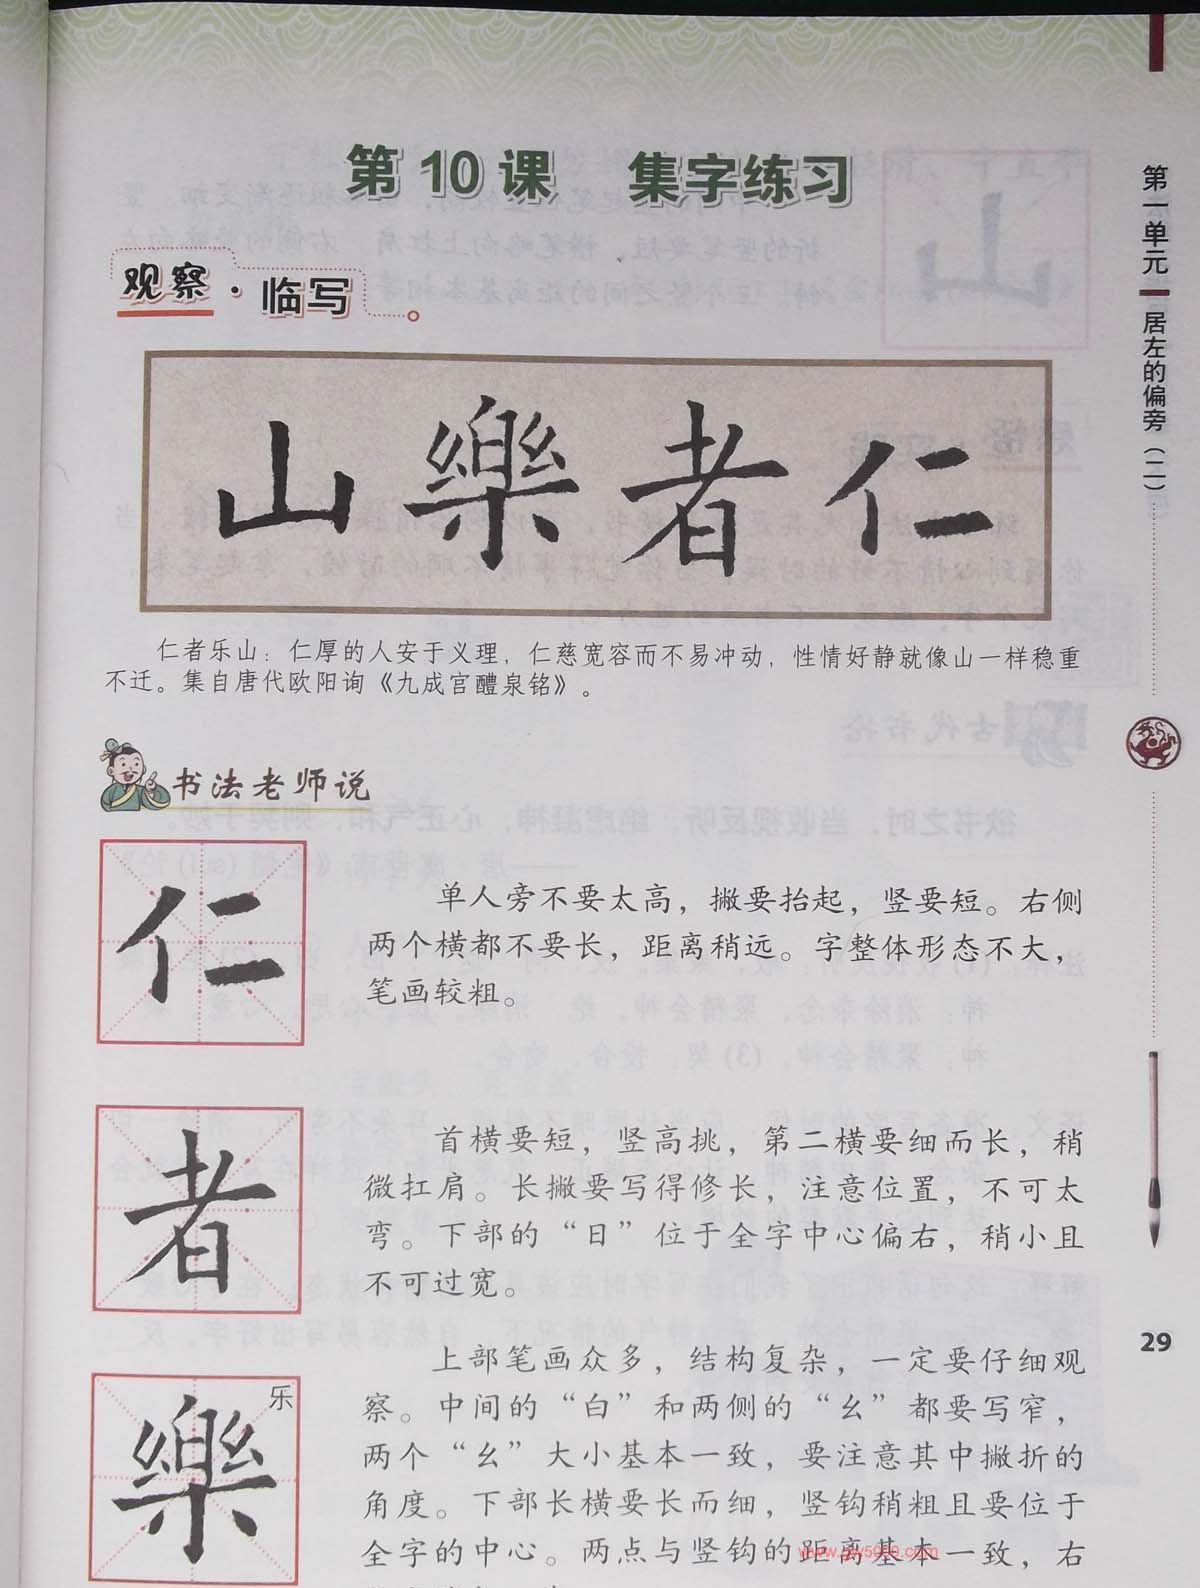 第10课 集字练习
观察·临写
山樂者仁
仁者乐山：仁厚的人安于义理，仁慈宽容而不易冲动，性情好静就像山一样稳重
不迁。集自唐代欧阳询《九成宫醴泉铭》。
书法老师说
仁
单人旁不要太高，撇要抬起，竖要短。右侧
两个横都不要长，距离稍远。字整体形态不大，
笔画较粗。
者
首横要短，竖高挑，第二横要细而长，稍
微扛肩。长撇要写得修长，注意位置，不可太
弯。下部的“日”位于全字中心偏右，稍小且
不可过宽。
樂
乐
上部笔画众多，结构复杂，一定要仔细观
察。中间的“白”和两侧的“幺”都要写窄，
两个“幺”大小基本一致，要注意其中撇折的
角度。下部长横要长而细，竖钩稍粗且要位于
全字的中心。两点与竖钩的距离基本一致，右
第一单元
居左的偏旁（二）
29